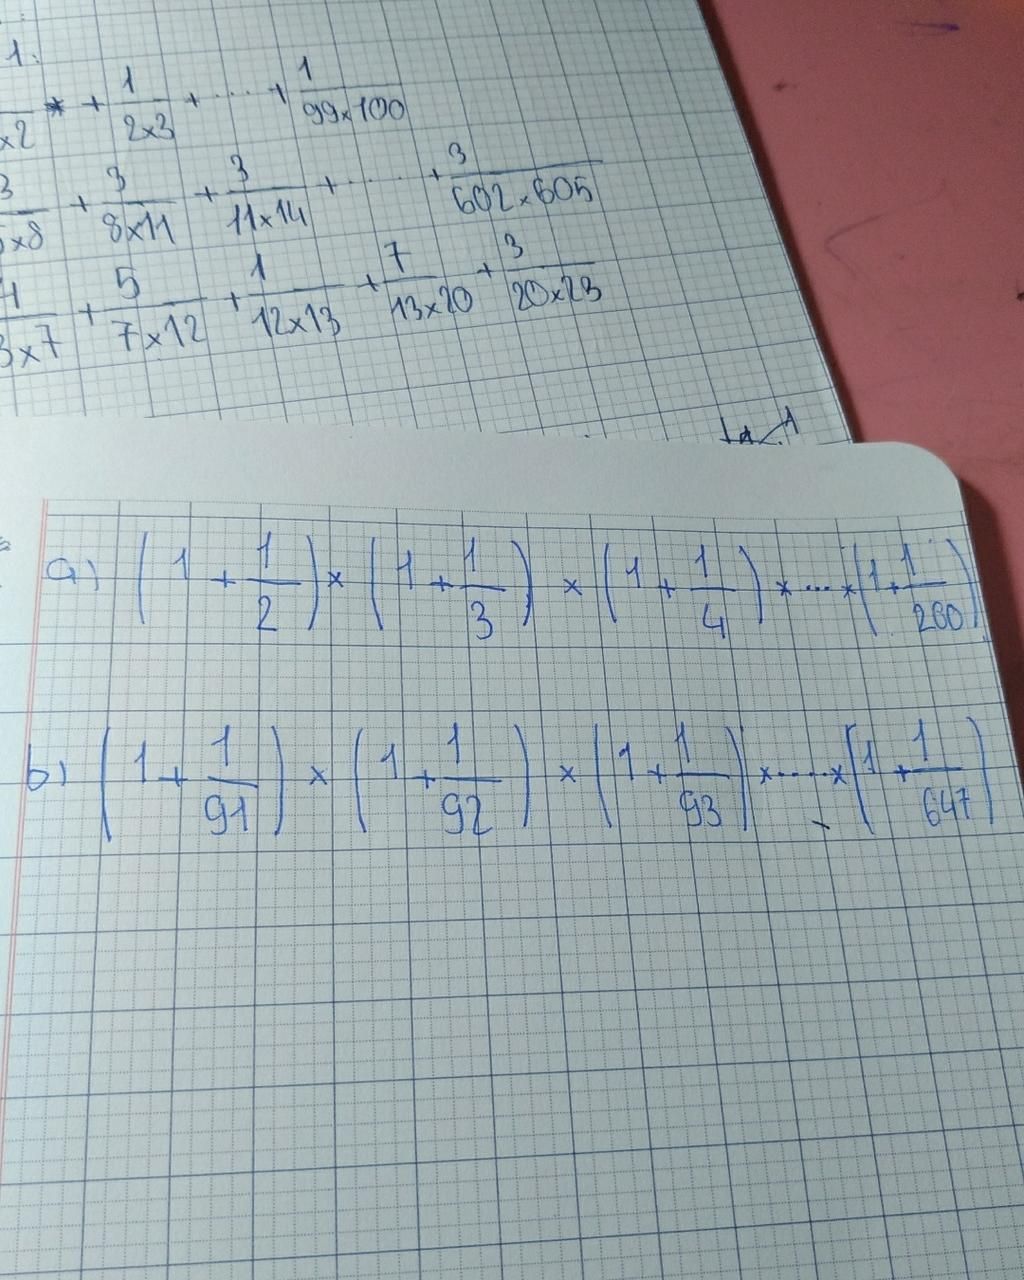 1.
×2 + 1/(2×3) + ..... + 1/(99×100)
3/(×8) + 3/(8×11) + 3/(11×14) + ..... + 3/(602×605)
4/(3×7) + 5/(7×12) + 1/(12×13) + 7/(13×20) + 3/(20×23)
a) (1 + 1/2) × (1 + 1/3) × (1 + 1/4) × ... × (1 + 1/260)
b) (1 + 1/91) × (1 + 1/92) × (1 + 1/93) × ..... × (1 + 1/647)